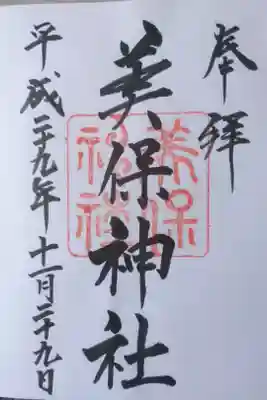 奉拝
美保神社
美保
神社
平成二十九年十一月二十九日